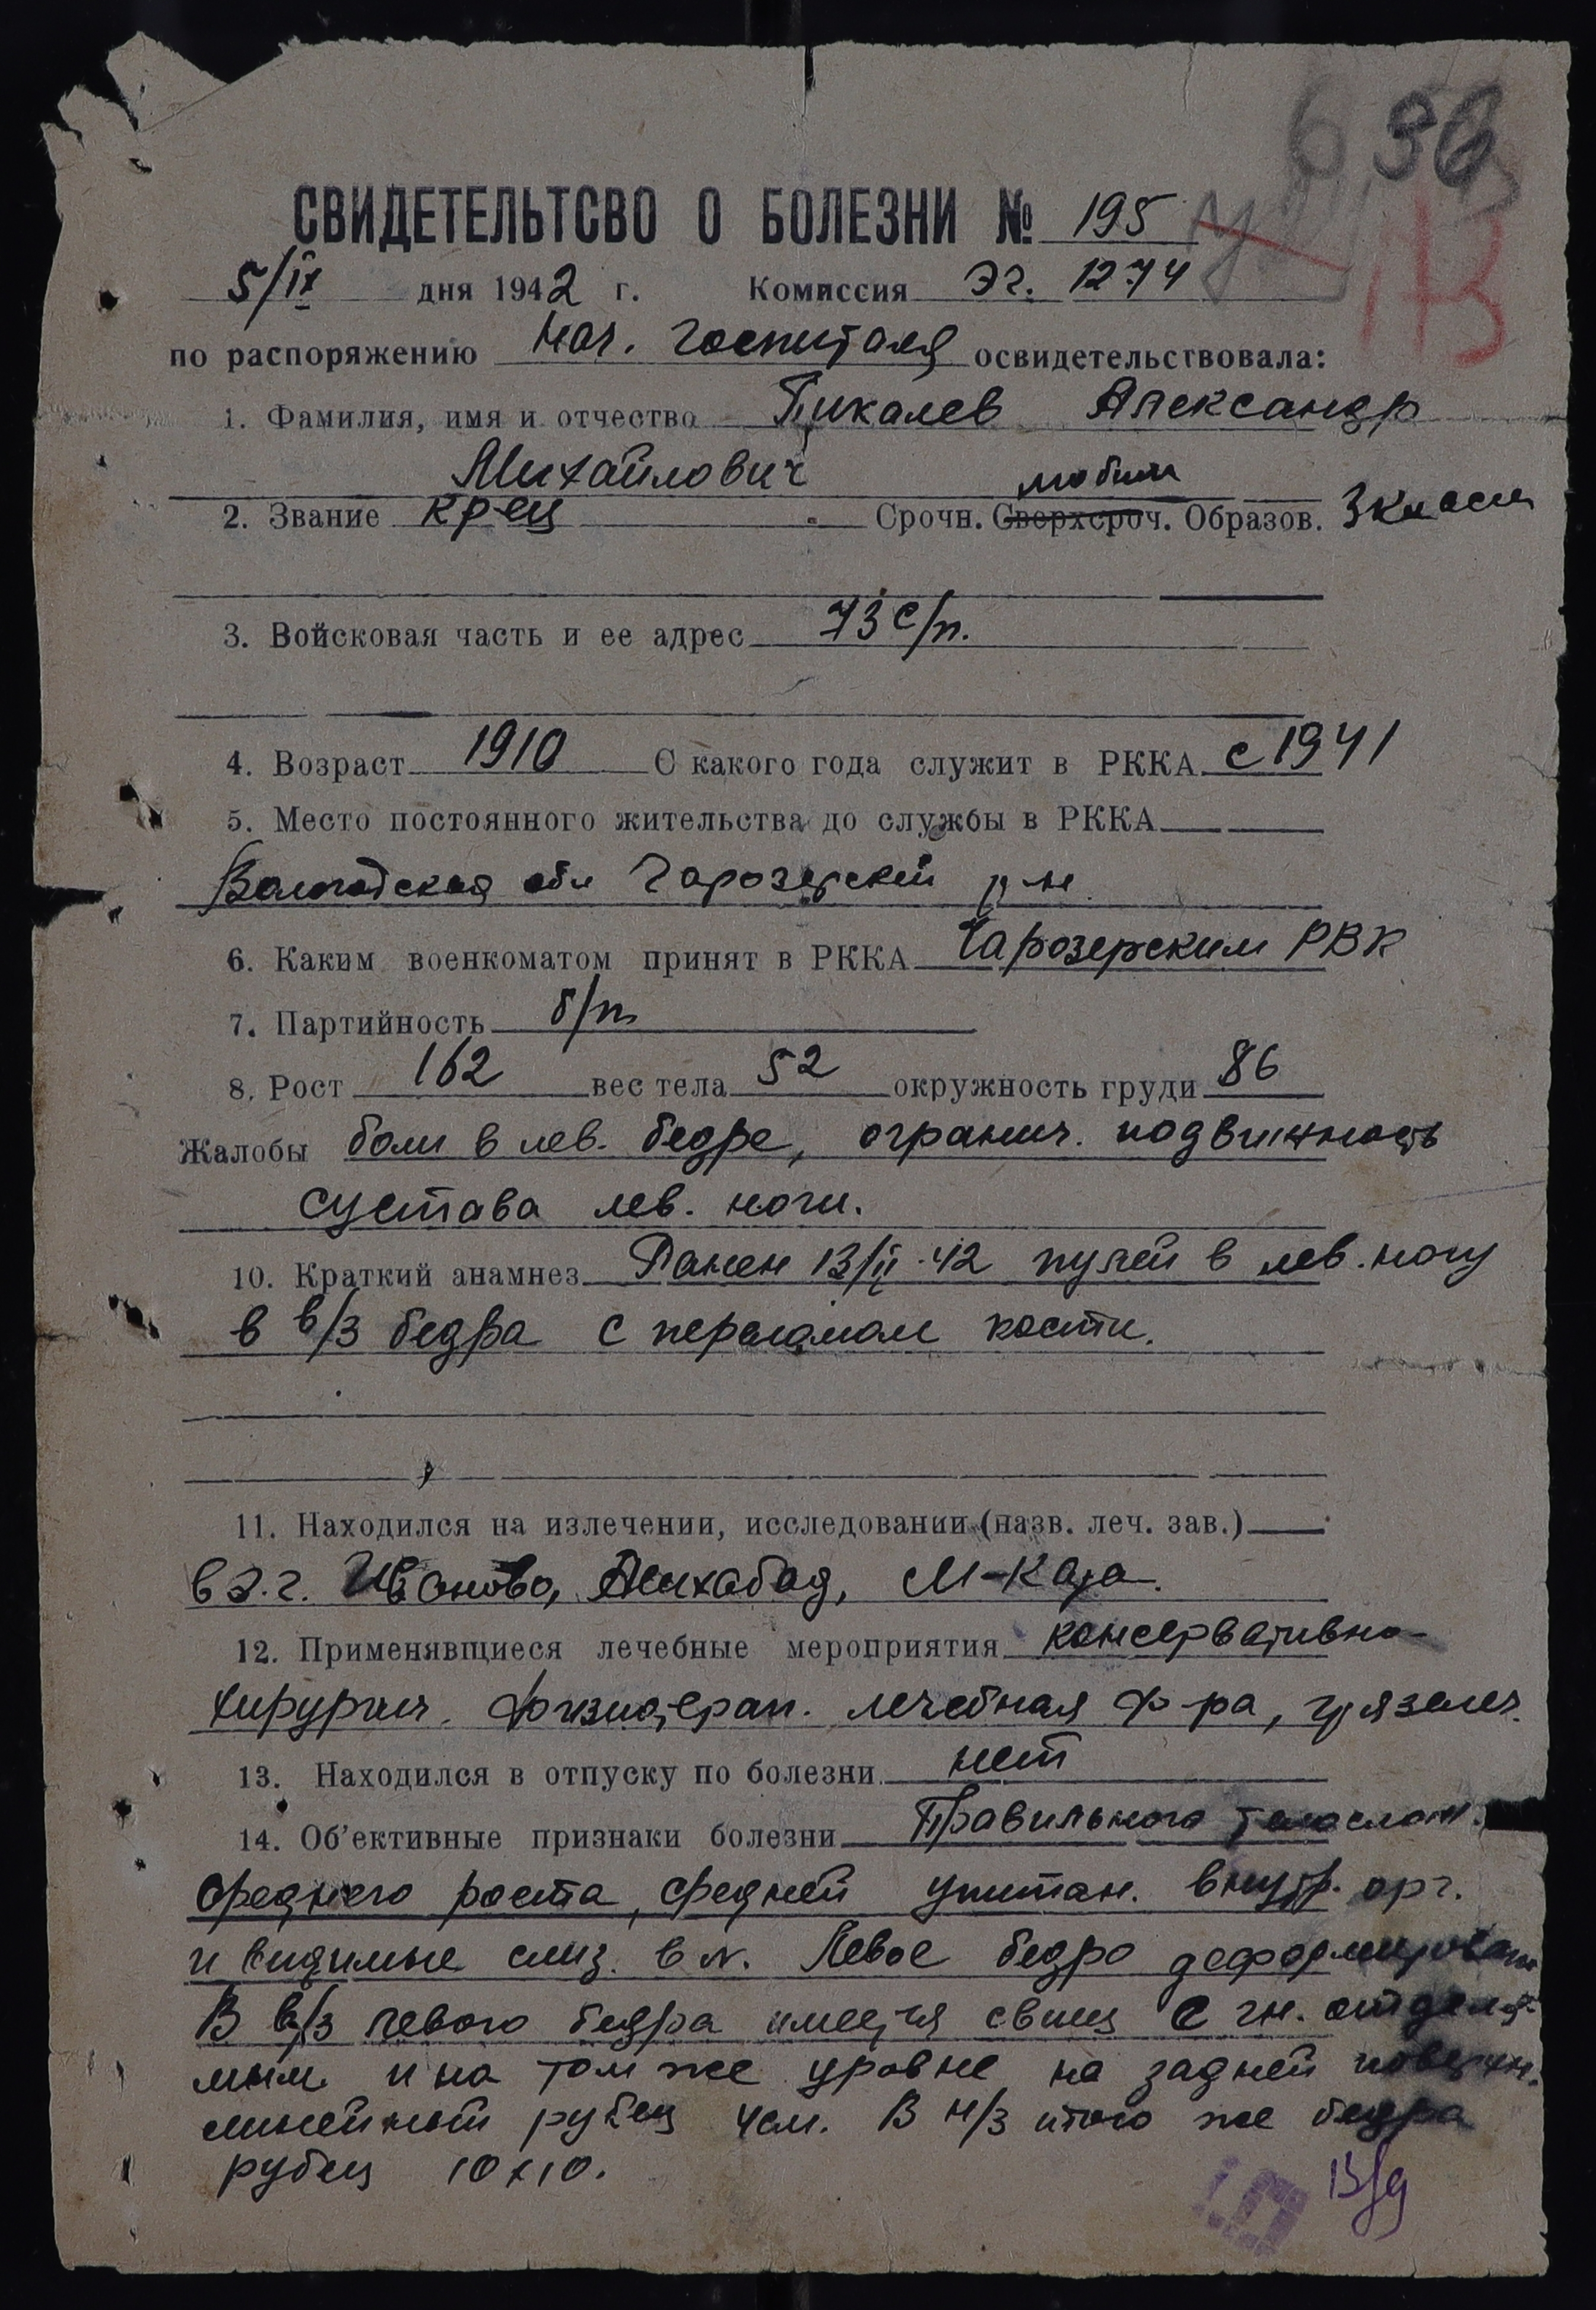 6 36
СВИДЕТЕЛЬТСВО О БОЛЕЗНИ № 195
5/IX дня 1942 г. Комиссия Эг. 1274
по распоряжению Нач. госпиталя освидетельствовала:
1. Фамилия, имя и отчество Пикалев Александр
Михайлович
2. Звание кр-ец Срочн. Сверхсроч. мобил Образов. 3 класса
3. Войсковая часть и ее адрес 73 с/п.
4. Возраст 1910 С какого года служит в РККА с 1941
5. Место постоянного жительства до службы в РККА
Вологодская обл Чарозерский р-н
6. Каким военкоматом принят в РККА Чарозерским РВК
7. Партийность б/п
8. Рост 162 вес тела 52 окружность груди 86
Жалобы боли в лев. бедре, огранич. подвижность
сустава лев. ноги.
10. Краткий анамнез Ранен 13/II-42 пулей в лев. ногу
в в/з бедра с переломом кости.
11. Находился на излечении, исследовании (назв. леч. зав.)
в э.г. Иваново, Ашхабад, М-Кара.
12. Применявщиеся лечебные мероприятия консервативно-
хирургич. физиотерап. лечебная ф-ра, грязелеч.
13. Находился в отпуску по болезни нет
14. Об'ективные признаки болезни Правильного телослож.
среднего роста, средней упитан. внутр. орг.
и видимые слиз. в N. Левое бедро деформировано
В в/з левого бедра имеется свищ с гн. отделя-
мым и на том же уровне на задней поверхн.
линейный рубец 4см. В н/з этого же бедра
рубец 10х10.
13/9